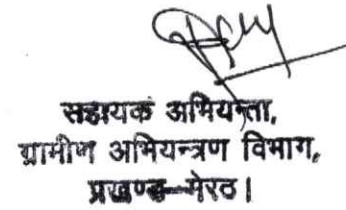 सहायक अभियन्ता,
ग्रामीण अभियन्त्रण विभाग,
प्रखण्ड मेरठ।